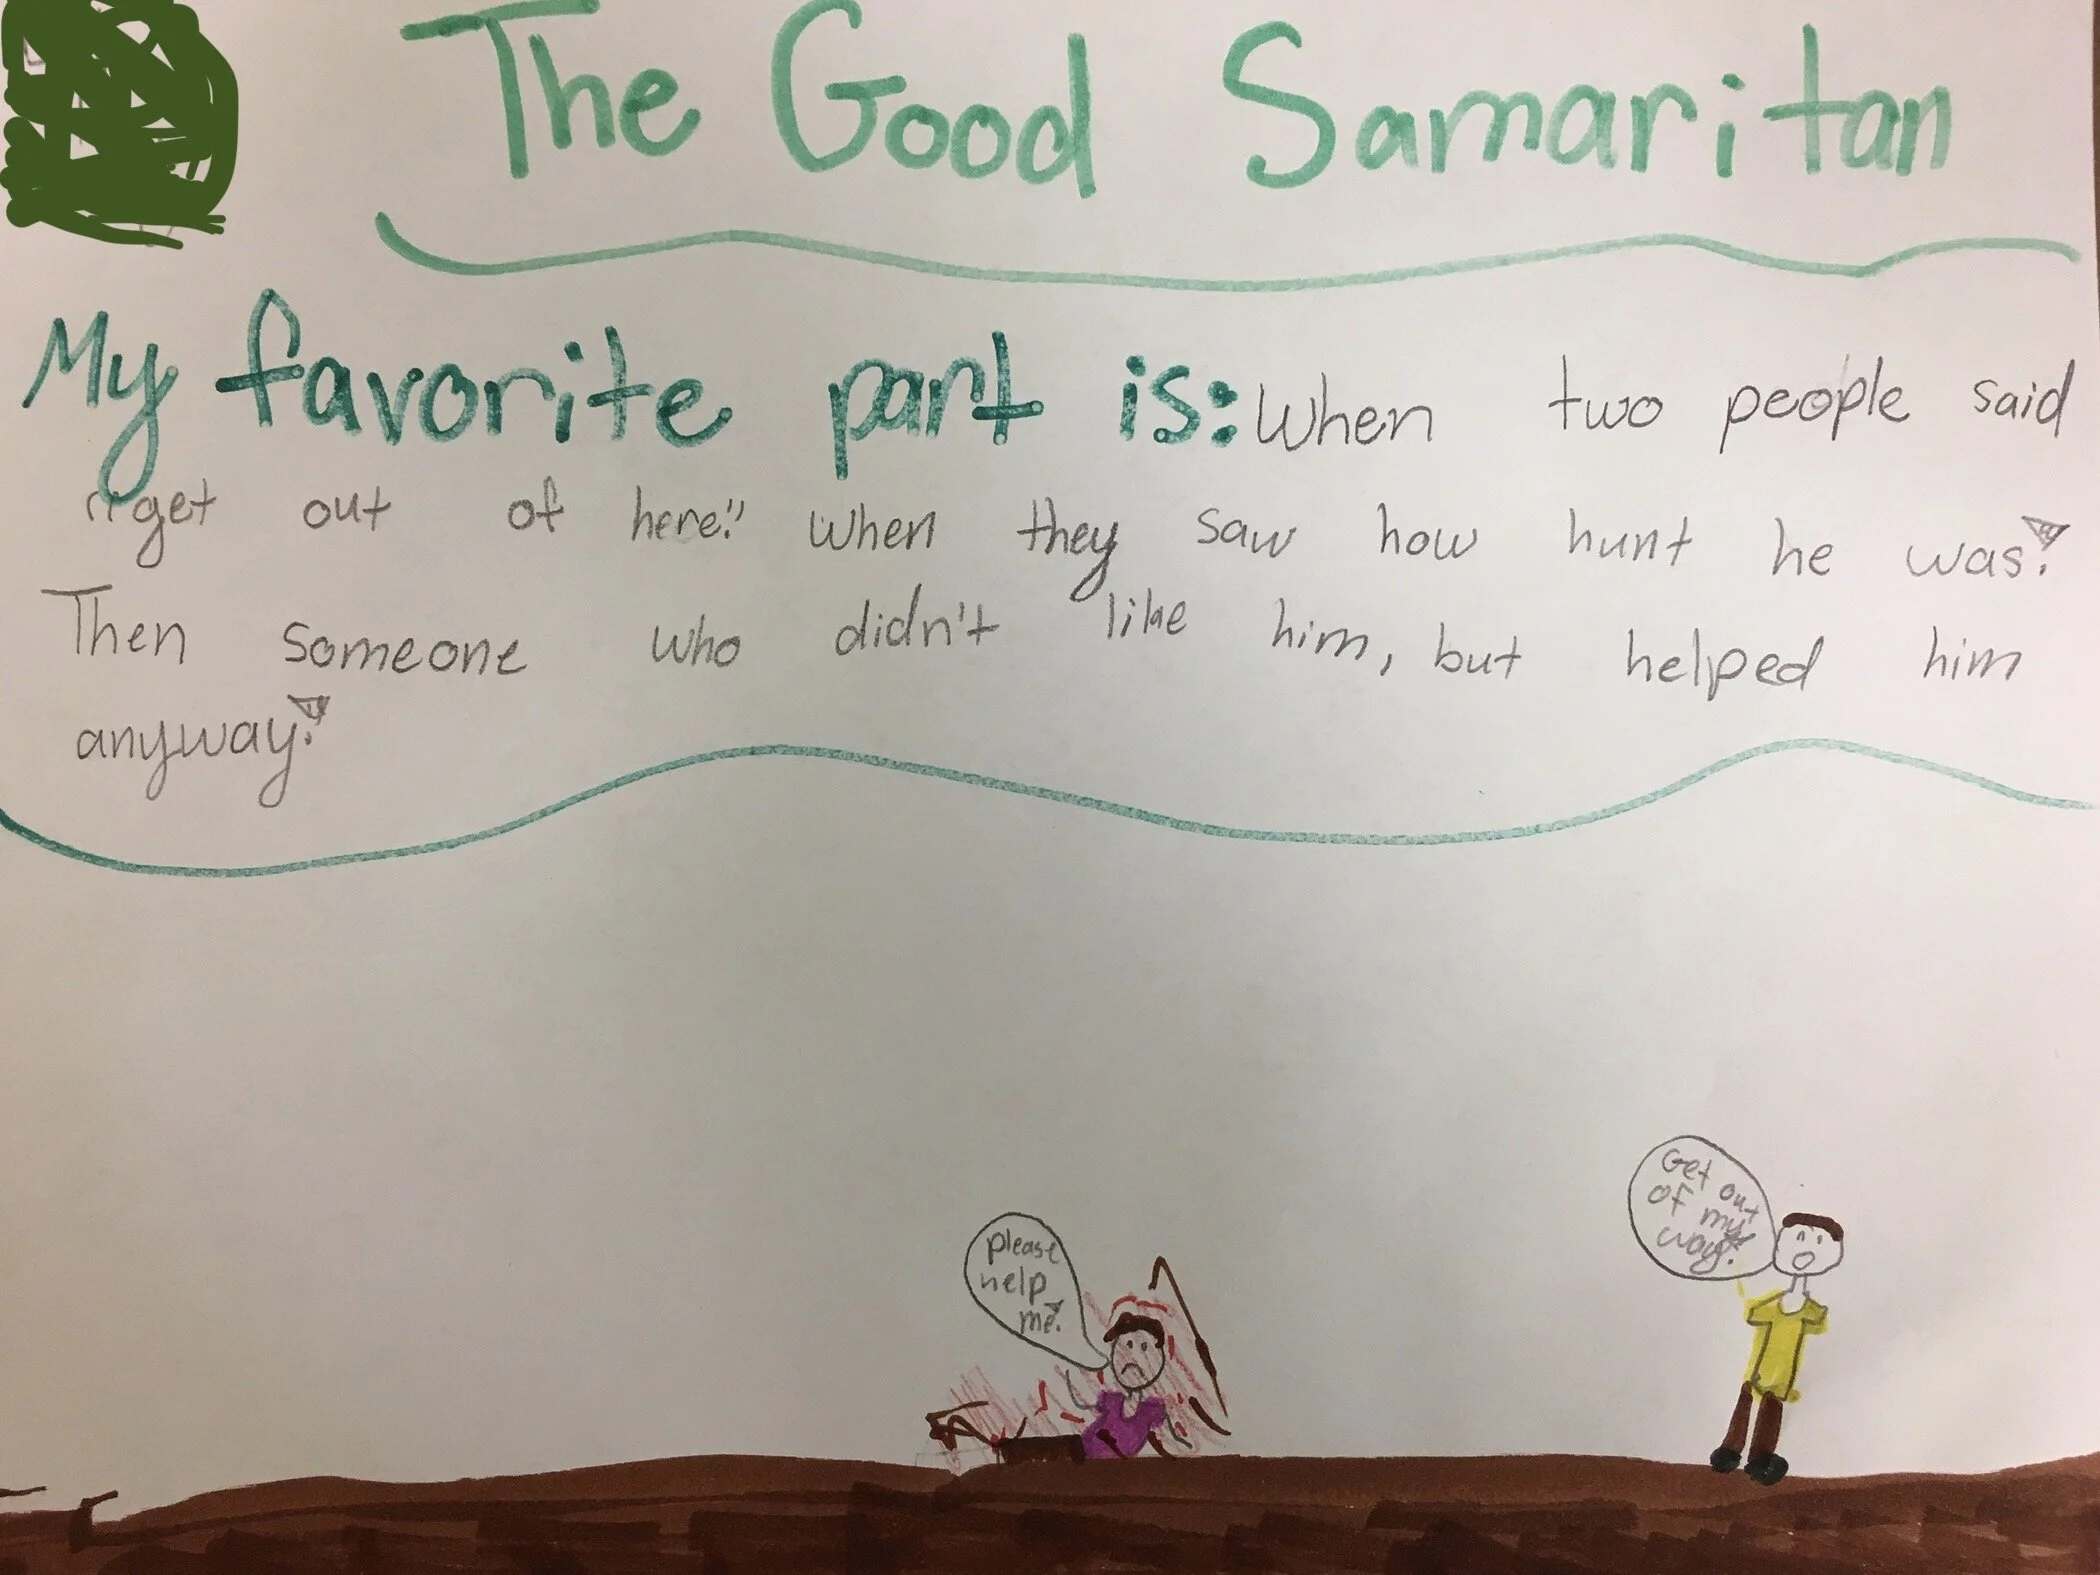 The Good Samaritan
My favorite part is: When two people said
"get out of here!" When they saw how hunt he was!
Then someone who didn't like him, but helped him
anyway!
please
help
me!
Get out
of my
way!